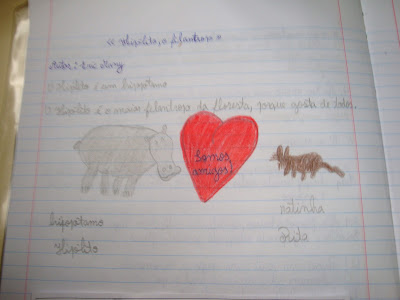 "Hipólito, o filantropo"
Autor: Luó Mary
O Hipólito é um hipopótamo
O Hipólito é o maior filantropo da floresta, porque gosta de todos.
Somos
amigos!
hipopótamo
Hipólito
ratinha
Rita